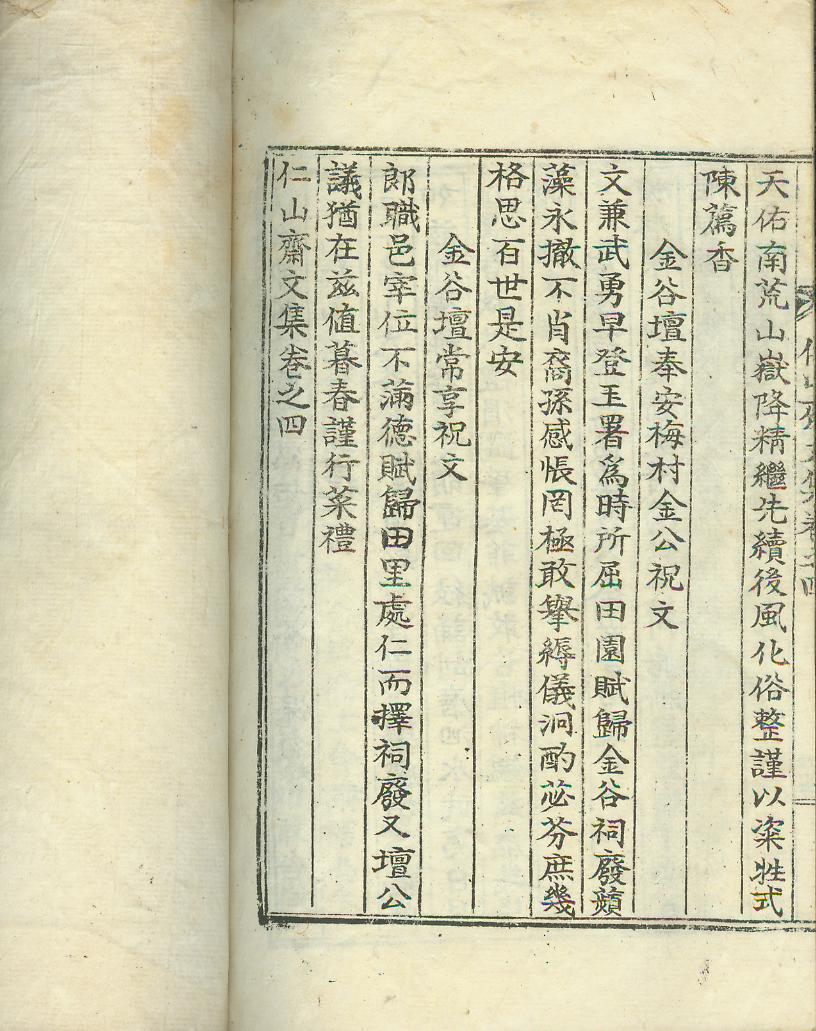 仁山齋文集卷之四
天佑南荒山嶽降精繼先續後風化俗整謹以粢牲式
陳薦香
金谷壇奉安梅村金公祝文
文兼武勇早登玉署爲時所屈田園賦歸金谷祠廢蘋
藻永撤不肖裔孫感悵罔極敢擧縟儀泂酌苾芬庶幾
格思百世是安
金谷壇常享祝文
郎職邑宰位不滿德賦歸田里處仁而擇祠廢又壇公
議猶在玆値暮春謹行菜禮
仁山齋文集卷之四